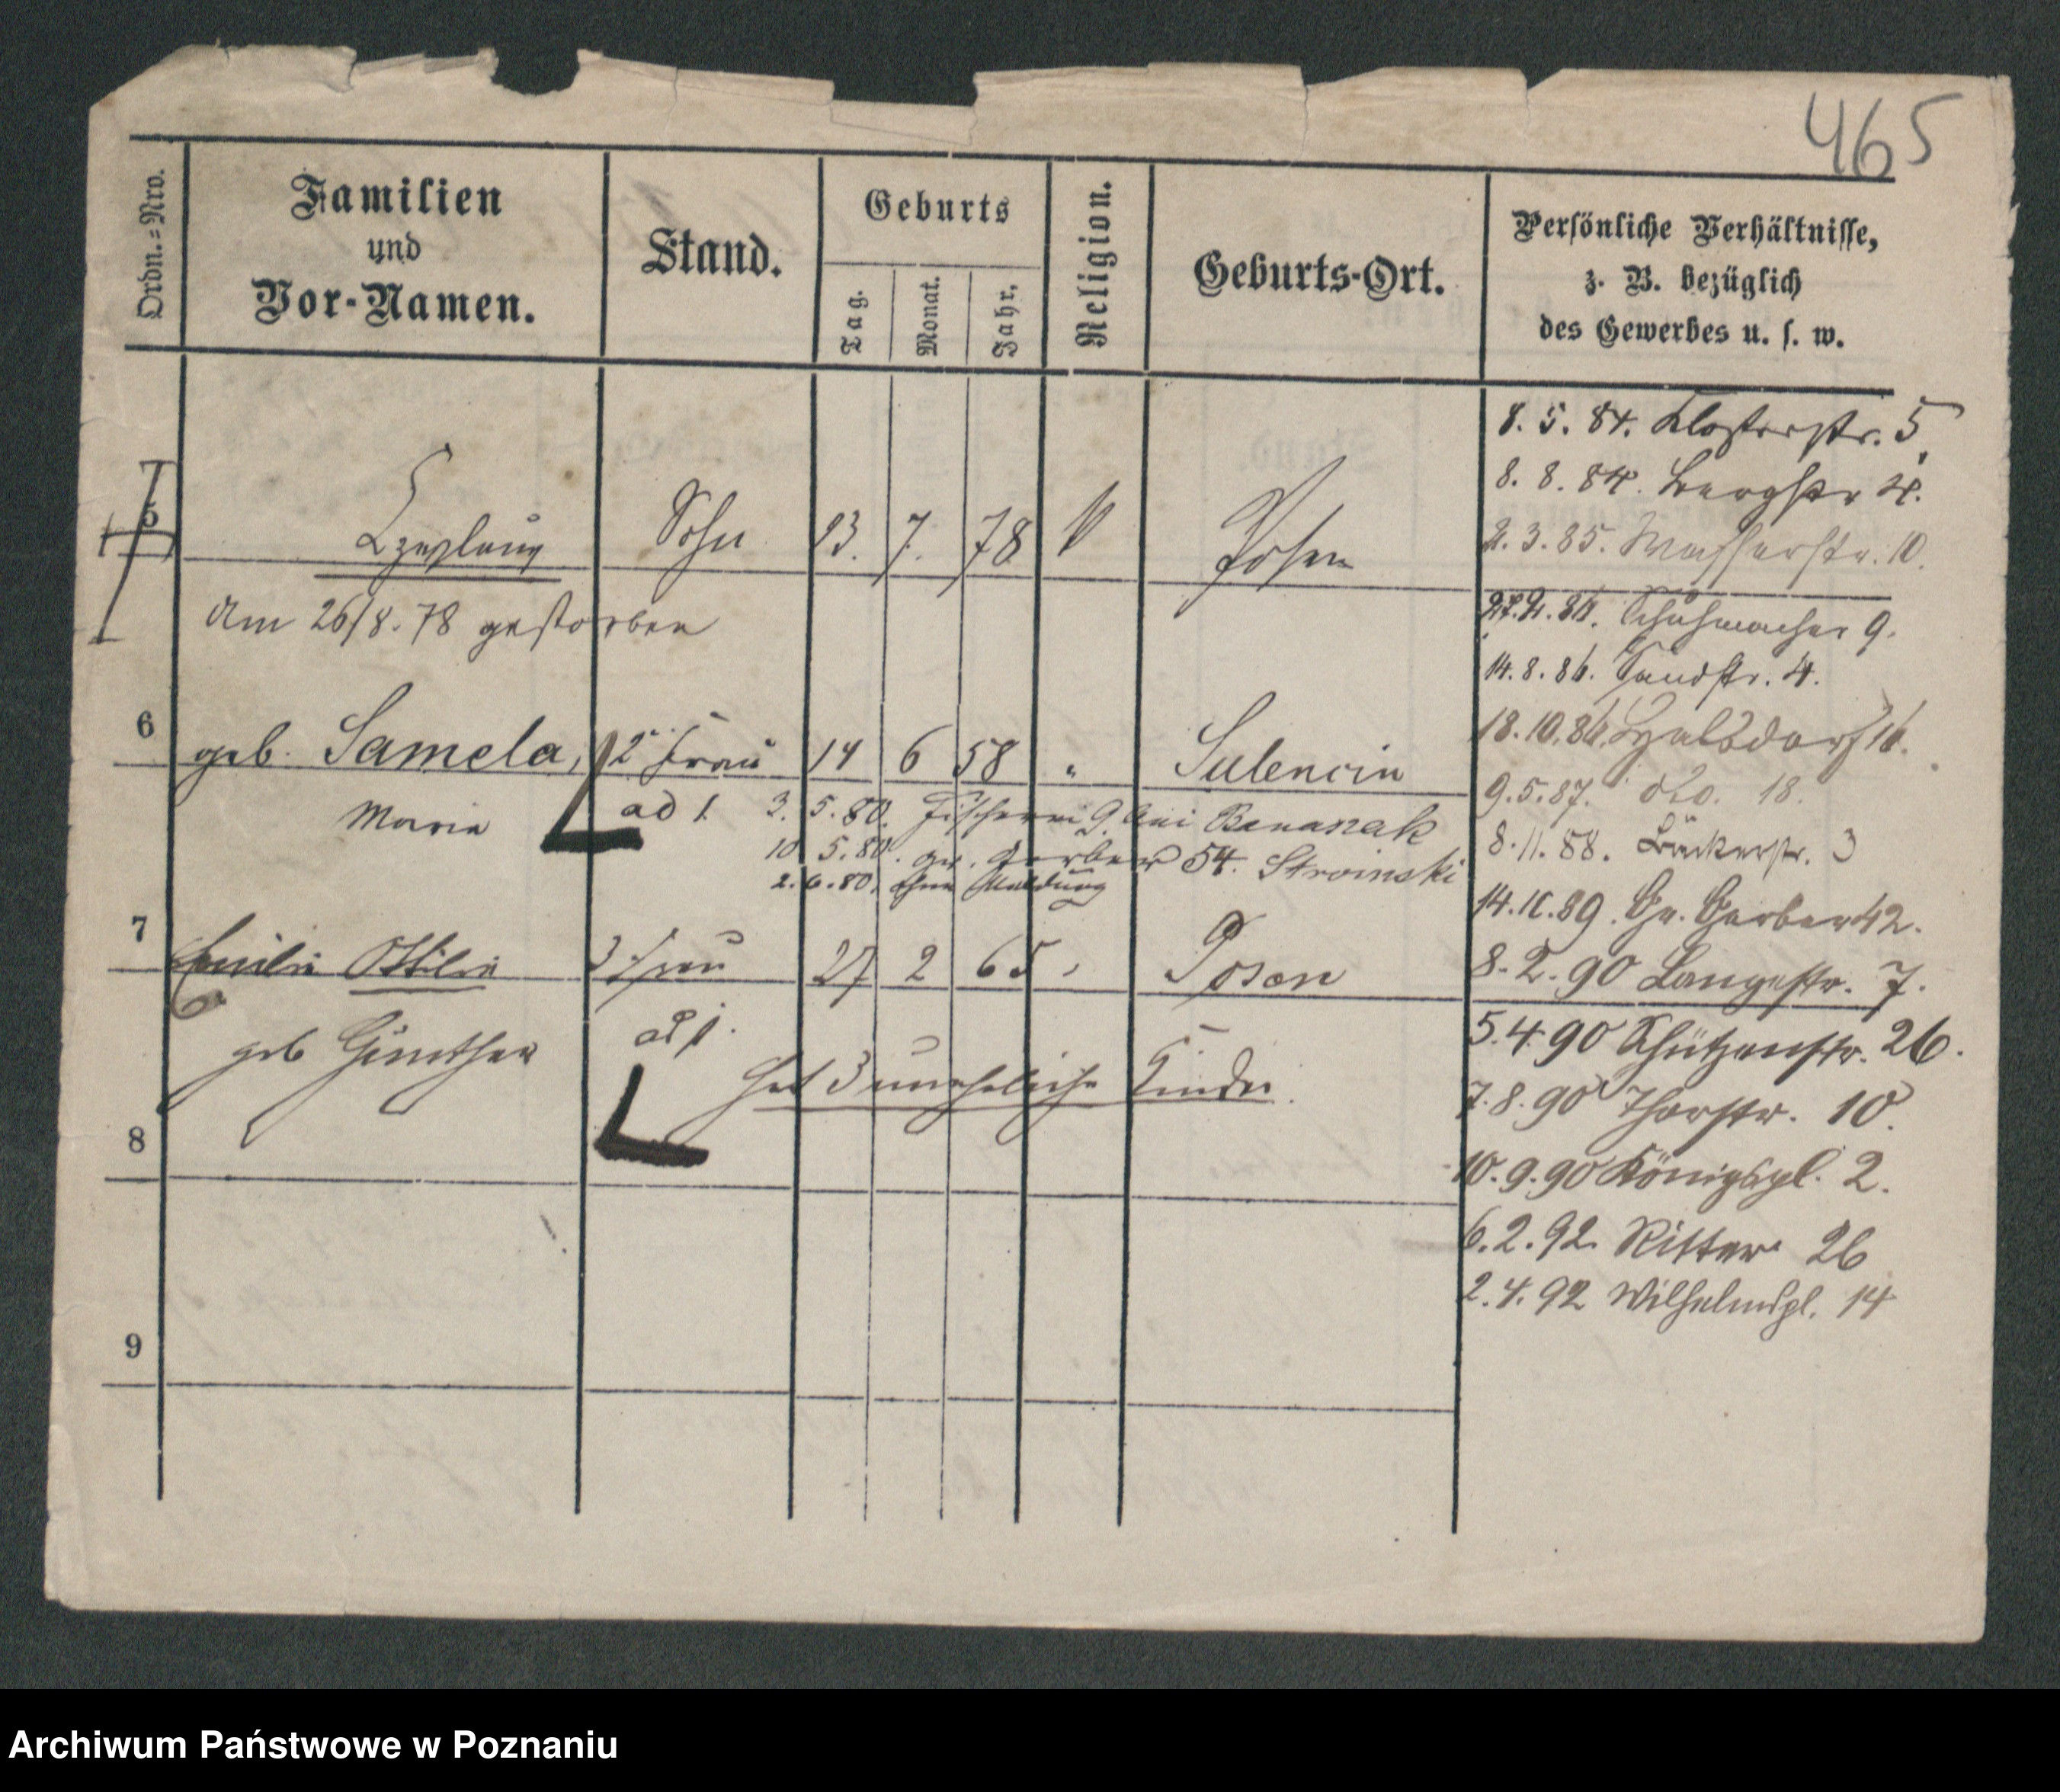 465
Ordn.=Nro.
Familien
und
Vor-Namen.
Stand.
Geburts
Tag.
Monat.
Jahr.
Religion.
Geburts-Ort.
Persönliche Verhältnisse,
z. B. bezüglich
des Gewerbes u. s. w.
5
Czeslaus Sohn 13. 7. 78 Posen
am 26/8. 78 gestorben
6
geb. Samela, 2te Frau 14 6 58 " Sulencin
Maria ad 1.
3. 5. 80. Fischerei 9. bei Banaszak
10 5. 80. gr. Gerber 54. Stroinski
2. 6. 80. ohne Meldung
7
Emilie Ottilie 3 Frau 27 2 65 " Posen
geb Günther ad 1.
hat 3 uneheliche Kinder.
8
9
8. 5. 84. Klosterstr. 5
8. 8. 84. Bergstr 4.
2. 3. 85. Wasserstr. 10.
27. 2. 86. Schuhmacher 9.
14. 8. 86. Sandstr. 4.
18. 10. 86. Halbdorf 16.
9. 5. 87. dto. 18.
8. 11. 88. Bäckerstr. 3
14. 10. 89. Gr. Gerber 42.
8. 2. 90 Langestr. 7.
5. 4. 90 Schützenstr. 26.
7. 8. 90 Thorstr. 10.
10. 9. 90 Königspl. 2.
6. 2. 92. Ritter 26
2. 4. 92 Wilhelmspl. 14
Archiwum Państwowe w Poznaniu